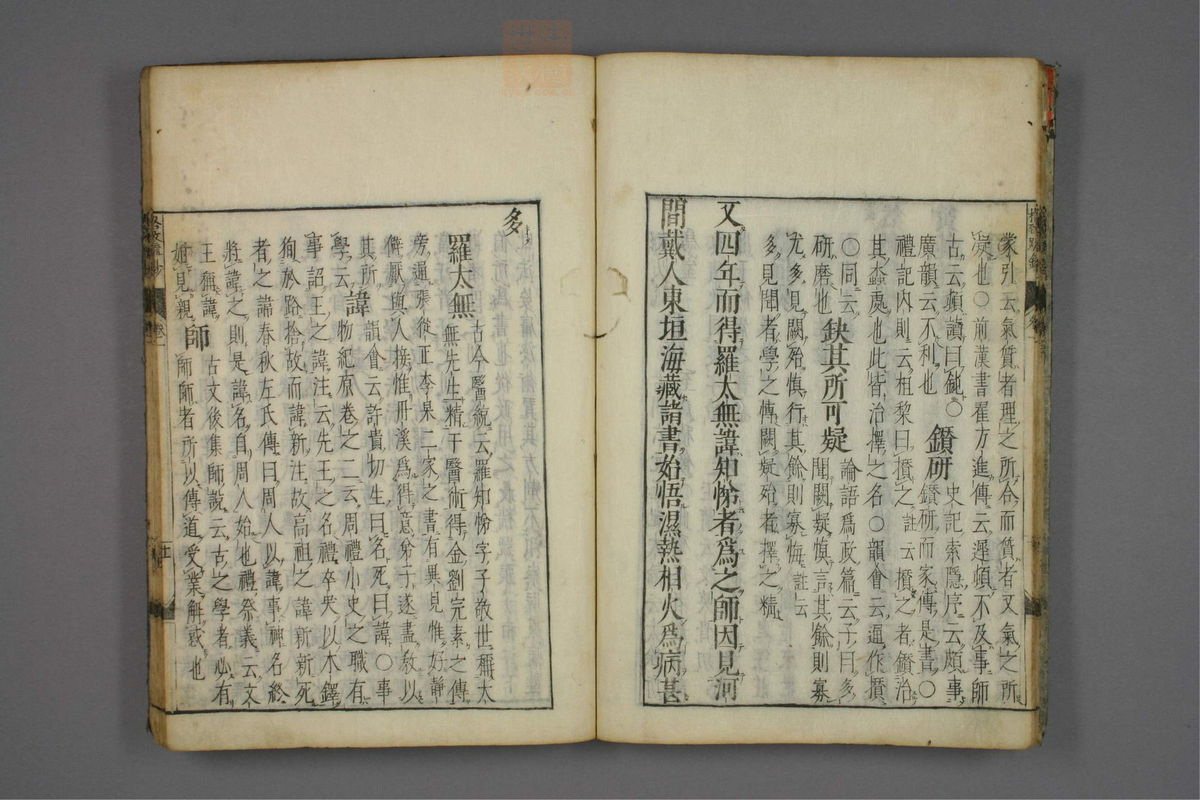 蒙引云氣質者理之所合而質者又氣之所
凝也○前漢書翟方進傳云遲頓不及事師
古云頓讀曰鈍○ 鑽研 史記索隱序云頗事
廣韻云不利也 鑽研而家傳是書○
禮記內則云柤黎曰攢之註云攢之者鑽治
其蟲處也此皆治擇之名○韻會云通作攢
○同云 缺其所可疑 論語爲政篇云子曰多
研磨也 聞闕疑慎言其餘則寡
尤多見闕殆慎行其餘則寡悔註云
多見聞者學之傳闕疑殆者擇之精
又四年而得羅太無諱知悌者爲之師因見河
間戴人東垣海藏諸書始悟濕熱相火爲病甚
多
羅太無 古今醫統云羅知悌字子敬世稱太
無先生精于醫術得金劉完素之傳
旁通張從正李杲二家之書有異見惟好靜
僻厭與人接惟丹溪爲得意弟子遂盡教以
其所 諱 韻會云許貴切生曰名死曰諱○事
學云 物紀原卷之二云周禮小史之職有
事詔王之諱注云先王之名禮卒哭以木鐸
狥於路捨故而諱新注故高祖之諱新新死
者之諱春秋左氏傳曰周人以諱事神名終
將諱之則是諱名自周人始也禮祭義云文
王稱諱 師 古文後集師說云古之學者必有
如見親 師師者所以傳道受業解惑也